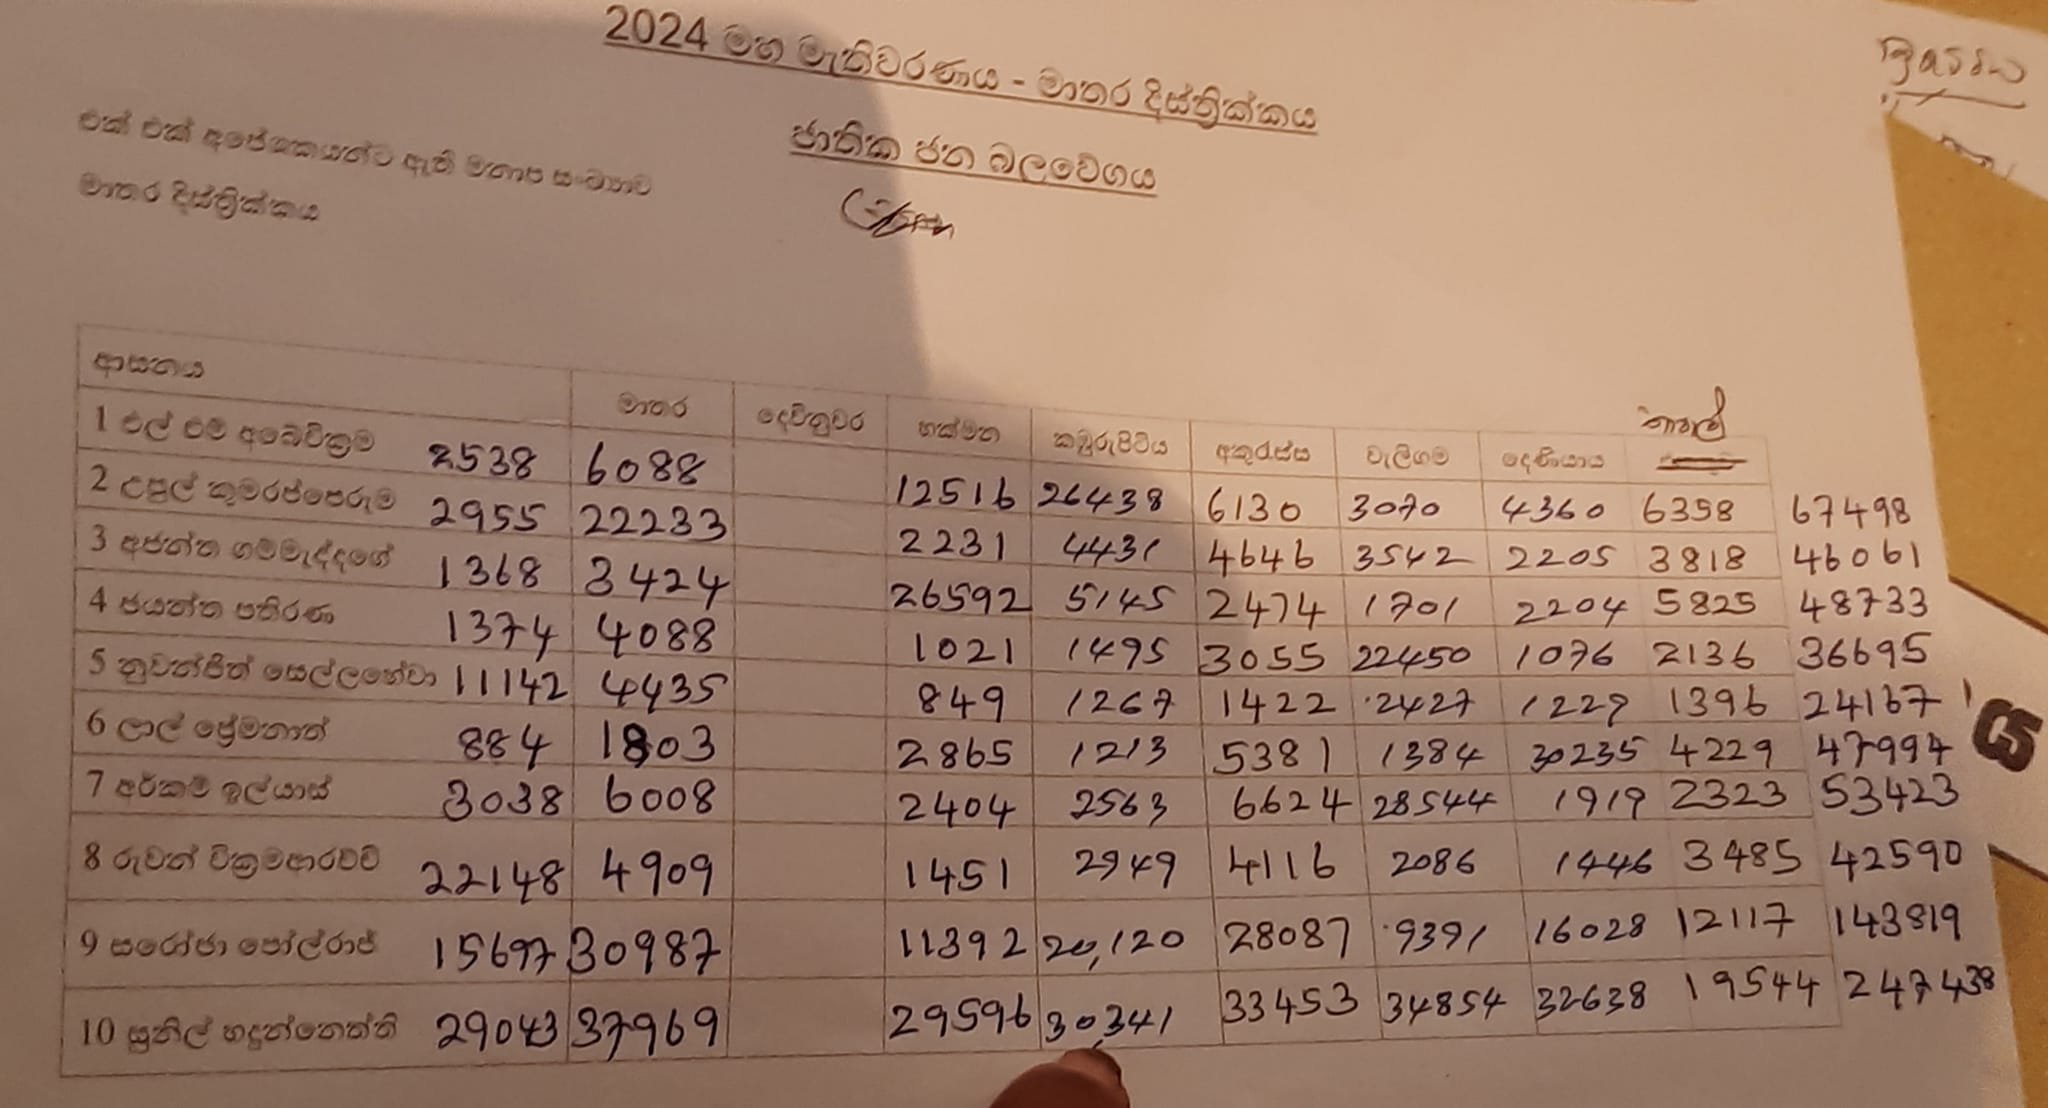 2024 මහ මැතිවරණය - මාතර දිස්ත්‍රික්කය
ජාතික ජන බලවේගය
එක් එක් අපේක්ෂකයන්ට ඇති මනාප සංඛ්‍යාව
මාතර දිස්ත්‍රික්කය
ආසනය මාතර දෙවිනුවර හක්මන කඹුරුපිටිය අකුරැස්ස වැලිගම දෙණියාය
1 එල් එම් අබේවික්‍රම 2538 6088 12516 26438 6130 3070 4360 6358 67498
2 උපුල් කුමරප්පෙරුම 2955 22233 2231 4431 4646 3542 2205 3818 46061
3 අජන්ත ගම්මැද්දගේ 1368 3424 26592 5145 2474 1701 2204 5825 48733
4 ජයන්ත පතිරණ 1374 4088 1021 1495 3055 22450 1076 2136 36695
5 නුවන්ජිත් සෙල්ලහේවා 11142 4435 849 1267 1422 2427 1229 1396 24167
6 ලාල් ප්‍රේමනාත් 884 1803 2865 1213 5381 1384 30235 4229 47994
7 අර්කම් ඉල්යාස් 3038 6008 2404 2563 6624 28544 1919 2323 53423
8 රුවන් වික්‍රමආරච්චි 22148 4909 1451 2949 4116 2086 1446 3485 42590
9 සරෝජා පෝල්රාජ් 15697 30987 11392 20,120 28087 9391 16028 12117 143819
10 සුනිල් හඳුන්නෙත්ති 29043 37969 29596 30,341 33453 34854 32638 19544 247438